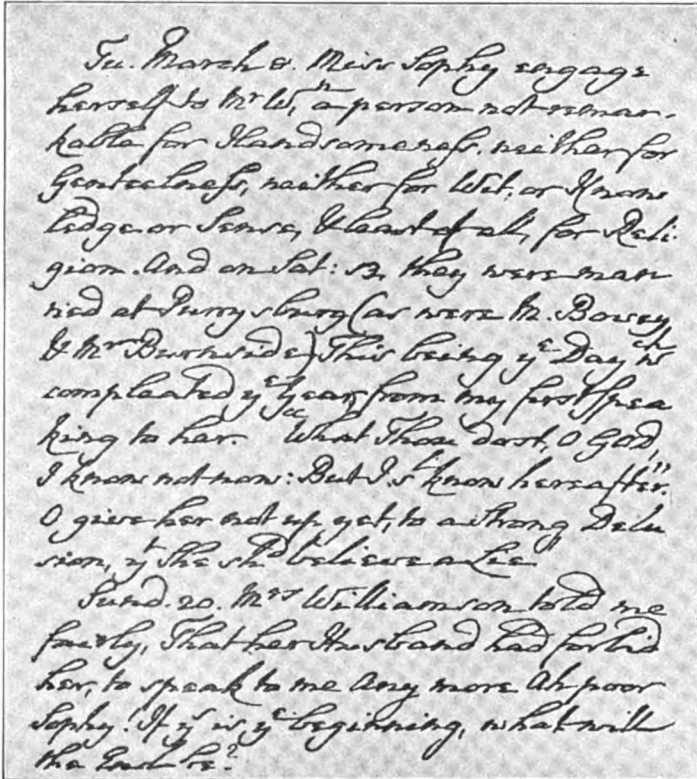 Tu. March 8. Miss Sophy engage
herself to Mr W,n a person not remar-
kable for Handsomeness. neither for
Genteelness, neither for Wit, or Know
ledge or Sense, & least of al, for Reli-
gion. And on Sat: 12, they were mar
ried at Purrysburg (as were M. Bovey
& Mr Burnside) This being ye Day wch
compleated ye Year from my first spea
king to her. "What Thou dost, O God,
I know not now: But I st know hereafter."
O give her not up yet, to a strong Delu
sion, yt She shd believe a Lie
Sund. 20. Mrs Williamson told me
fairly, That her Husband had forbid
her, to speak to me any more Ah poor
Sophy! If ys is ye beginning, what will
the End be?